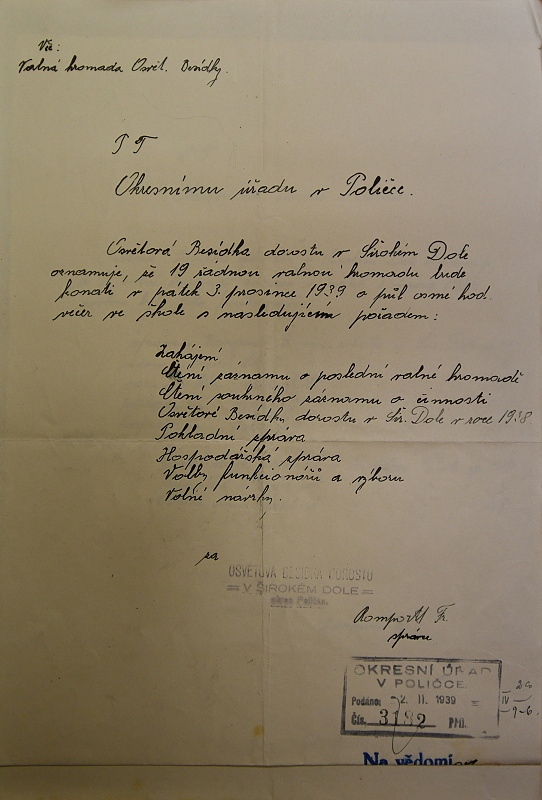 Věc:
Valná hromada Osvět. Besídky.
P T
Okresnímu úřadu v Poličce.
Osvětová Besídka dorostu v Širokém Dole
oznamuje, že 19 řádnou valnou hromadu bude
konati v pátek 3. prosince 1939 o půl osmé hod.
večer ve škole s následujícím pořadem:
Zahájení
Čtení záznamu o poslední valné hromadě
Čtení souhrného záznamu o činnosti
Osvětové Besídky dorostu v Šir. Dole v roce 1938.
Pokladní zpráva
Hospodářská zpráva
Volby funkcionářů a výboru
Volné návrhy.
za
OSVĚTOVÁ BESÍDKA DOROSTU
V ŠIROKÉM DOLE
okres Polička.
Fr.
správce
OKRESNÍ ÚŘAD
V POLIČCE
Podáno: 2. II. 1939
Čís. 3182 Příl.
IV
9-6
Na vědomí